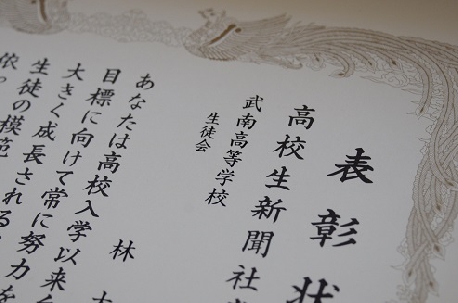 表彰状
高校生新聞社
武南高等学校
生徒会
林
あなたは高校入学以来
目標に向けて常に努力を
大きく成長される
生徒の模範
依っ